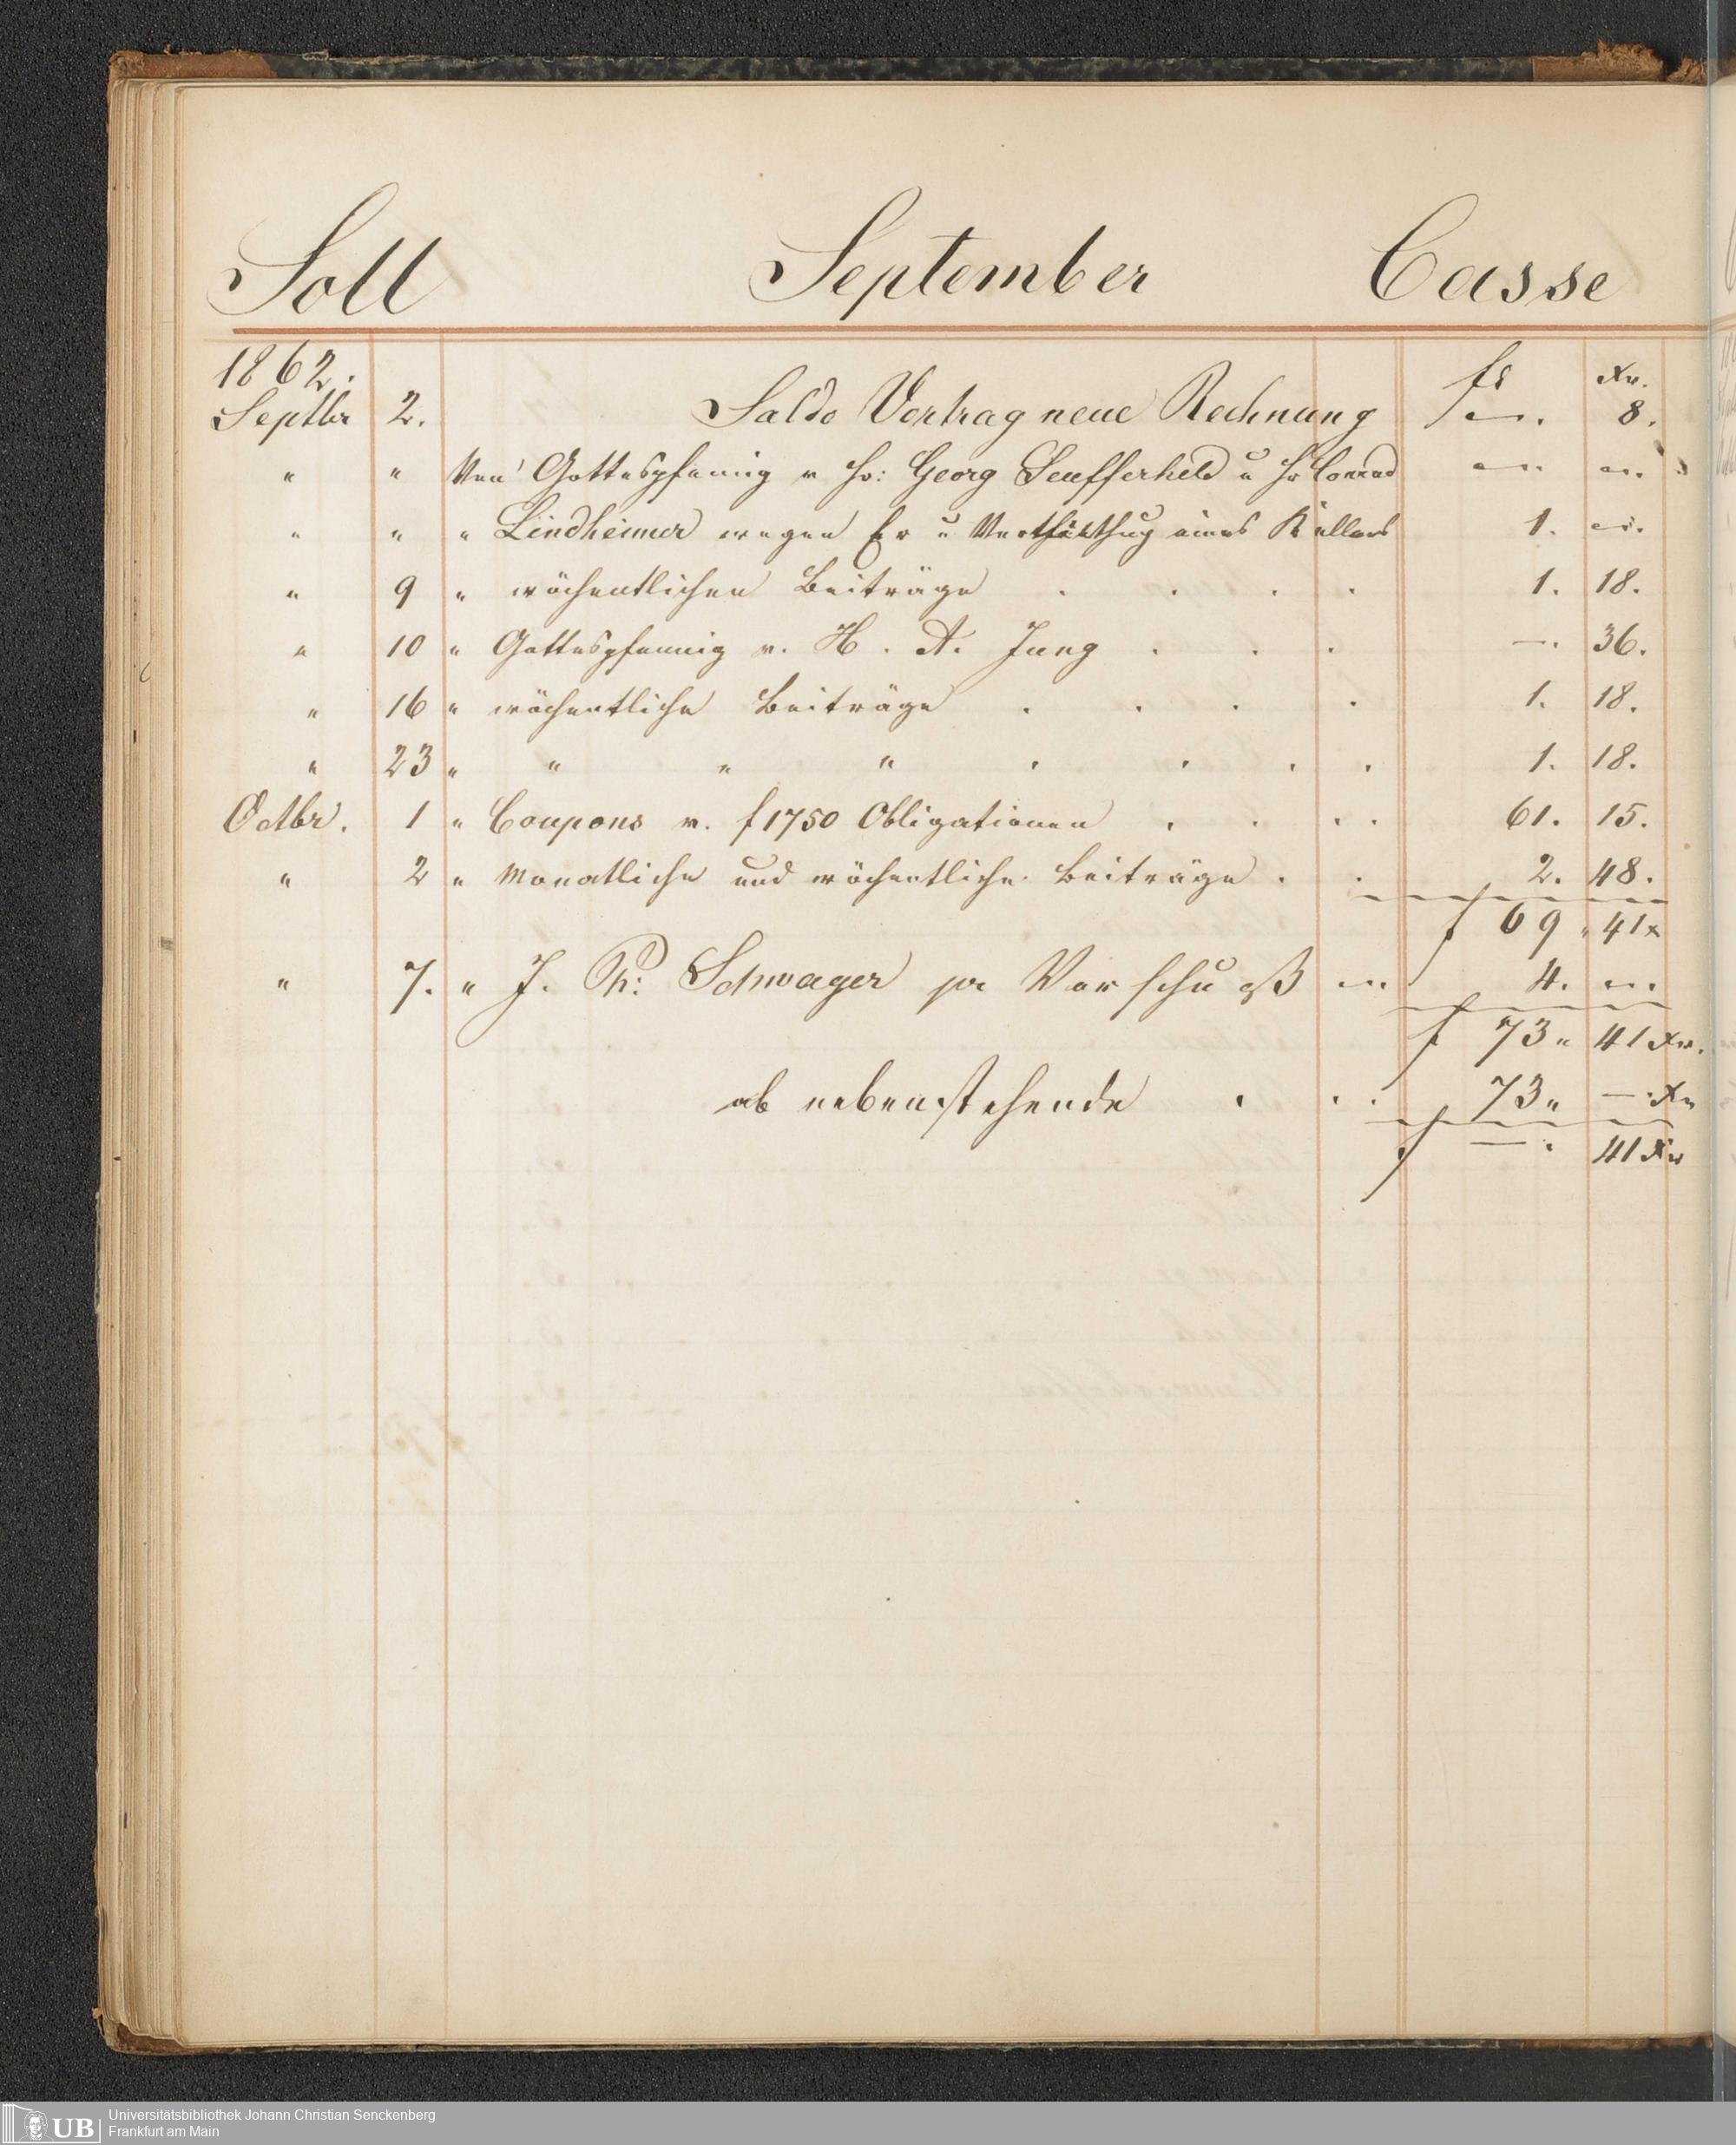 Soll September Casse
1862. fl Xr.
Septbr 2. Saldo Vortrag neue Rechnung f —. 8.
" " Von Gottespfennig v Hr: Georg Seufferheld u Hr Conrad —. —.
" " " Lindheimer wegen Er u eines Kellers 1. —.
" 9 " wöchentlichen Beiträge . . . . 1. 18.
" 10 " Gottespfennig v. H. A. Jung . . . —. 36.
" 16 " wöchentliche Beiträge . . . . 1. 18.
" 23 " " " " . . . . 1. 18.
Octbr. 1 " Coupons v. f 1750 Obligationen . . . . 61. 15.
" 2 " Monatliche und wöchentliche Beiträge . . 2. 48.
f 69 " 41x
" 7. " J. Ph: Schwager pr Vorschuß — 4. —.
f 73 " 41 Xr.
ab nebenstehende . . . 73 " — . Xr
f — . 41 Xr
UB Universitätsbibliothek Johann Christian Senckenberg
Frankfurt am Main